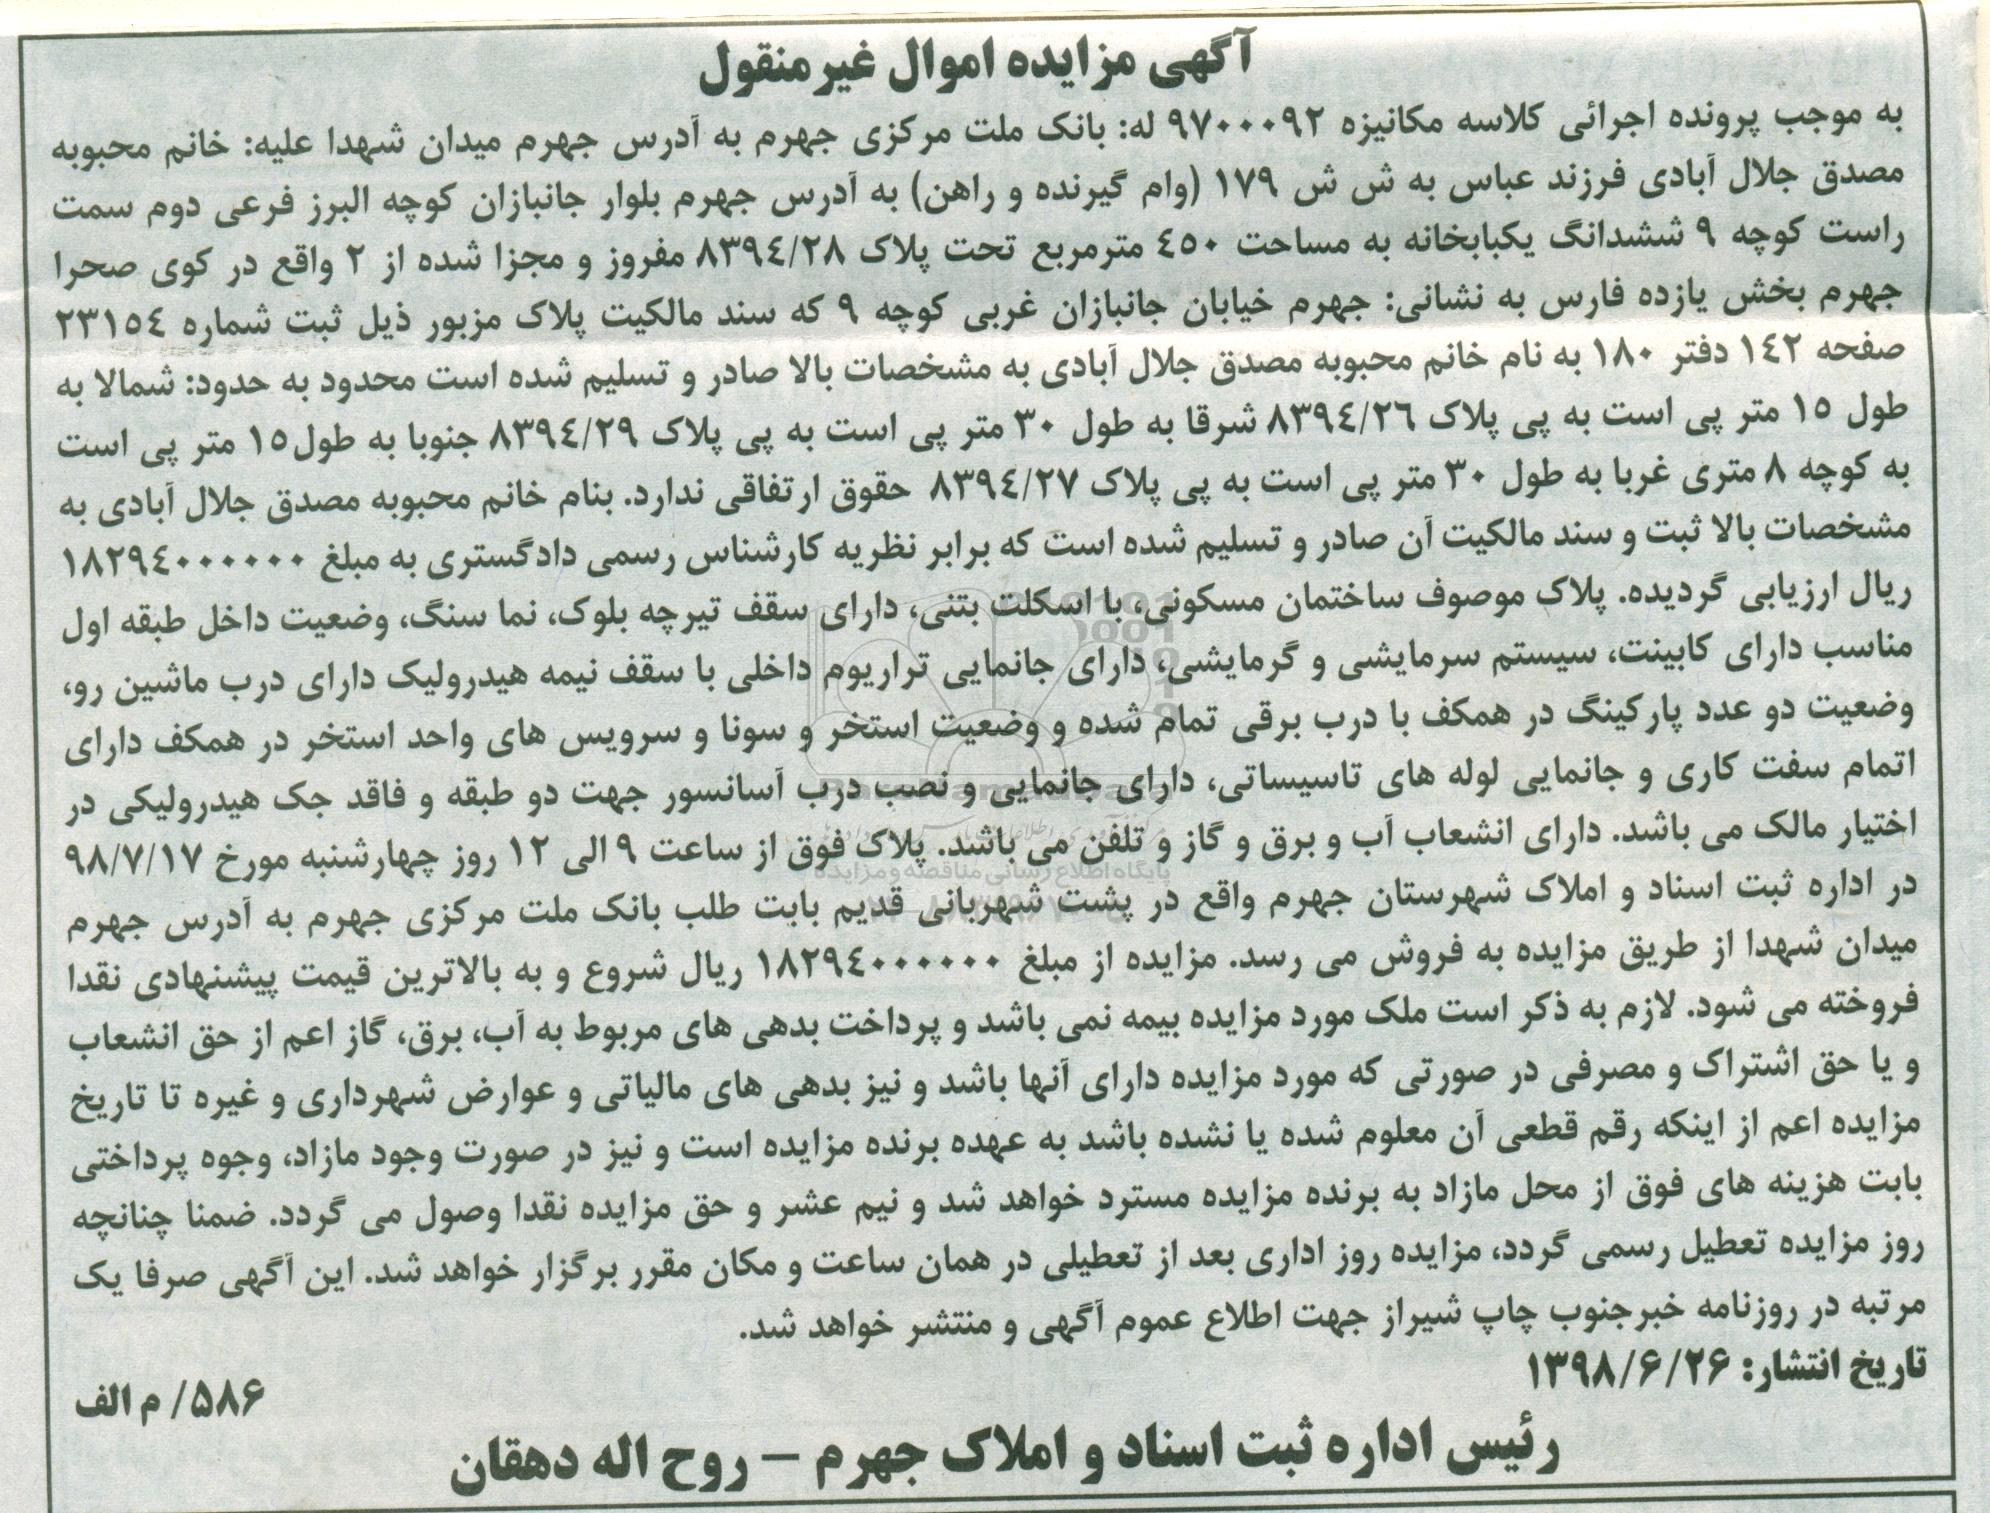 آگهی مزایده اموال غیرمنقول
به موجب پرونده اجرائی کلاسه مکانیزه ۹۷۰۰۰۹۲ له: بانک ملت مرکزی جهرم به آدرس جهرم میدان شهدا علیه: خانم محبوبه
مصدق جلال آبادی فرزند عباس به ش ش ۱۷۹ (وام گیرنده و راهن) به آدرس جهرم بلوار جانبازان کوچه البرز فرعی دوم سمت
راست کوچه ۹ ششدانگ یکبابخانه به مساحت ٤٥٠ مترمربع تحت پلاک ۸۳۹٤/۲۸ مفروز و مجزا شده از ۲ واقع در کوی صحرا
جهرم بخش یازده فارس به نشانی: جهرم خیابان جانبازان غربی کوچه ۹ که سند مالکیت پلاک مزبور ذیل ثبت شماره ۲۳۱٥٤
صفحه ۱٤۲ دفتر ۱۸۰ به نام خانم محبوبه مصدق جلال آبادی به مشخصات بالا صادر و تسلیم شده است محدود به حدود: شمالا به
طول ۱٥ متر پی است به پی پلاک ۸۳۹٤/۲٦ شرقا به طول ۳۰ متر پی است به پی پلاک ۸۳۹٤/۲۹ جنوبا به طول۱٥ متر پی است
به کوچه ۸ متری غربا به طول ۳۰ متر پی است به پی پلاک ۸۳۹٤/۲۷ حقوق ارتفاقی ندارد. بنام خانم محبوبه مصدق جلال آبادی به
مشخصات بالا ثبت و سند مالکیت آن صادر و تسلیم شده است که برابر نظریه کارشناس رسمی دادگستری به مبلغ ۱۸۲۹٤۰۰۰۰۰۰
ریال ارزیابی گردیده. پلاک موصوف ساختمان مسکونی، با اسکلت بتنی، دارای سقف تیرچه بلوک، نما سنگ، وضعیت داخل طبقه اول
مناسب دارای کابینت، سیستم سرمایشی و گرمایشی، دارای جانمایی تراریوم داخلی با سقف نیمه هیدرولیک دارای درب ماشین رو،
وضعیت دو عدد پارکینگ در همکف با درب برقی تمام شده و وضعیت استخر و سونا و سرویس های واحد استخر در همکف دارای
اتمام سفت کاری و جانمایی لوله های تاسیساتی، دارای جانمایی و نصب درب آسانسور جهت دو طبقه و فاقد جک هیدرولیکی در
اختیار مالک می باشد. دارای انشعاب آب و برق و گاز و تلفن می باشد. پلاک فوق از ساعت ۹ الی ۱۲ روز چهارشنبه مورخ ۹۸/۷/۱۷
پایگاه اطلاع رسانی مناقصه و مزایده
در اداره ثبت اسناد و املاک شهرستان جهرم واقع در پشت شهربانی قدیم بابت طلب بانک ملت مرکزی جهرم به آدرس جهرم
میدان شهدا از طریق مزایده به فروش می رسد. مزایده از مبلغ ۱۸۲۹٤۰۰۰۰۰۰ ریال شروع و به بالاترین قیمت پیشنهادی نقدا
فروخته می شود. لازم به ذکر است ملک مورد مزایده بیمه نمی باشد و پرداخت بدهی های مربوط به آب، برق، گاز اعم از حق انشعاب
و یا حق اشتراک و مصرفی در صورتی که مورد مزایده دارای آنها باشد و نیز بدهی های مالیاتی و عوارض شهرداری و غیره تا تاریخ
مزایده اعم از اینکه رقم قطعی آن معلوم شده یا نشده باشد به عهده برنده مزایده است و نیز در صورت وجود مازاد، وجوه پرداختی
بابت هزینه های فوق از محل مازاد به برنده مزایده مسترد خواهد شد و نیم عشر و حق مزایده نقدا وصول می گردد. ضمنا چنانچه
روز مزایده تعطیل رسمی گردد، مزایده روز اداری بعد از تعطیلی در همان ساعت و مکان مقرر برگزار خواهد شد. این آگهی صرفا یک
مرتبه در روزنامه خبرجنوب چاپ شیراز جهت اطلاع عموم آگهی و منتشر خواهد شد.
تاریخ انتشار: ۱۳۹۸/۶/۲۶
۵۸۶/ م الف
رئیس اداره ثبت اسناد و املاک جهرم – روح اله دهقان